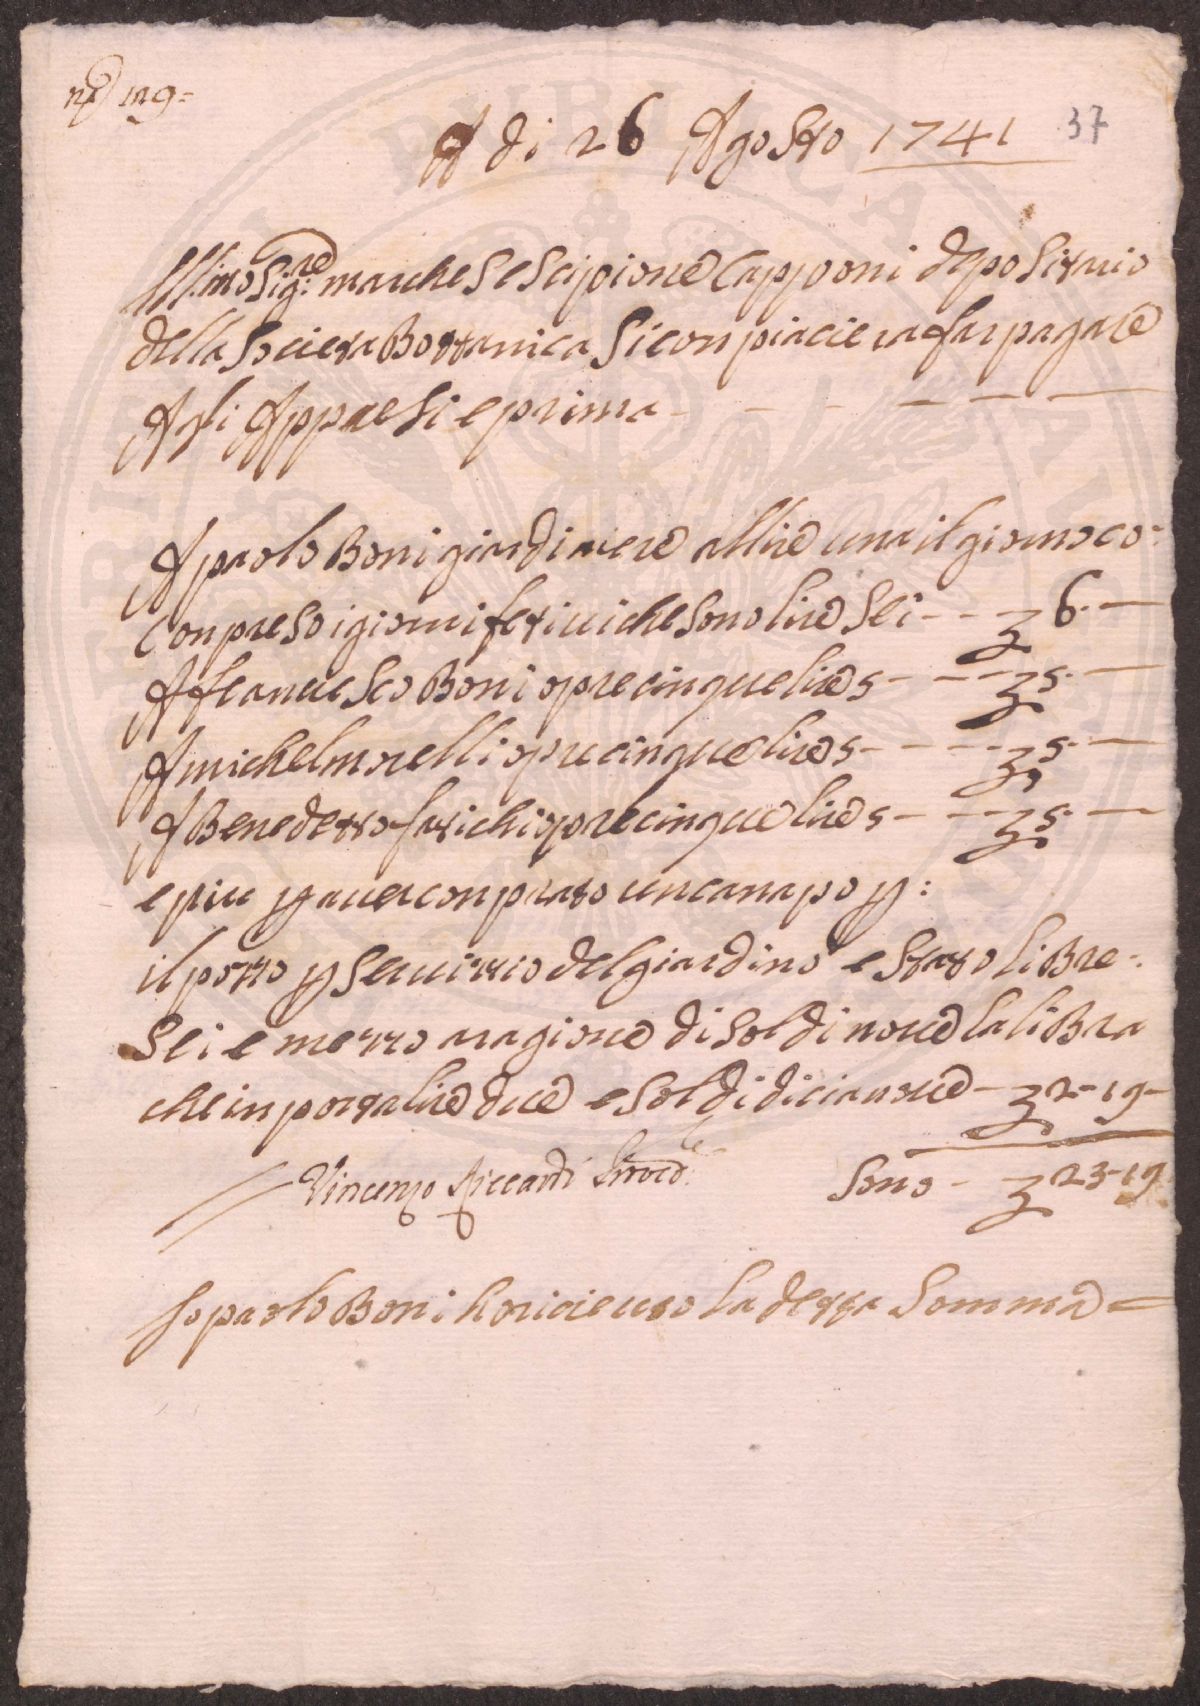 129=
A di 26 Agosto 1741 37
Ill.mo Sig:re marchese Scipione Capponi depositario
della Societa Bottanica Si conpiaciera far pagare
Agli Appiesi e prima
A paolo Boni giardiniere allire una il giorno co=
conpreso i giorni festivi che sono lire Sei - - 6. -
A francescо Boni opre cinque lire 5 - - - 5. -
A michel morelli opre cinque lire 5 - - - - 5. -
A Benedetto fatichi opre cinque lire 5 - - - 5. -
e piu p aver conprato un canapo p:
il pozzo p Servizzio del giardino e Stato liBre:
Sei e mezzo a ragione di Soldi nove la liBra
che inporta lire due e Soldi dicianove - 2 - 19 -
Vincenzo Riccardi Provd.re Sono - 23 - 19
Io paolo Boni ho riceuto la detta Somma =